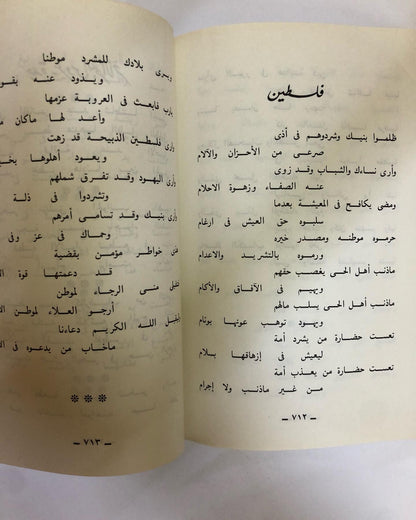 فلسطين
ظلموا بنيك وشردوهم فى أذى
صرعى من الأحزان والآلام
وأرى نساءك والشباب وقد زوى
عنه الصفاء وزهرة الاحلام
ومضى يكافح فى المعيشة بعدما
سلبوه حق العيش فى ارغام
حرموه موطنه ومصدر خيره
ورموه بالتشريد والاعدام
ماذنب أهل الحى يغصب حقهم
ويهيم فى الآفاق والآكام
ماذنب أهل الحى يسلب مالهم
ويهود توهب عونها بوئام
نعست حضارة من يشرد أمة
ليعيش فى إزهاقها بسلام
نعست حضارة من يعذب أمة
من غير ماذنب ولا إجرام
— ٧١٢ —
ويرى بلادك للمشرد موطنا
ويذود عنه
يارب فابعث فى العروبة عزمها
وأعد لها ماكان
وأرى فلسطين الذبيحة قد زهت
ويعود أهلوها
وأرى اليهود وقد تفرق شملهم
وتشردوا فى ذلة
وأرى بنيك وقد تسامى أمرهم
وحماك فى عز
خواطر مؤمن بقضية
قد دعمتها قوة
منى الرجاء لموطن
أرجو العلاء لموطن
الله الكريم دعاءنا
ماخاب من يدعوه فى
***
— ٧١٣ —